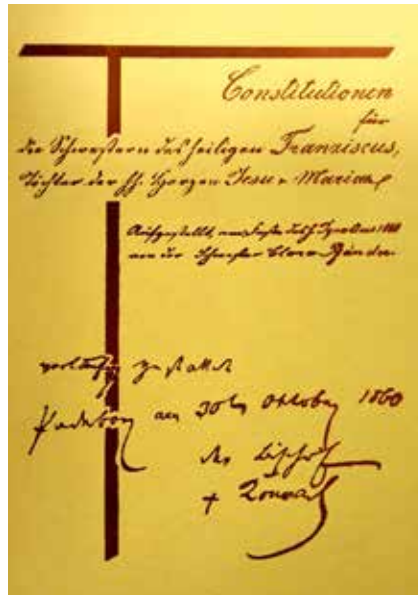 Constitutionen
für
die Schwestern des heiligen Franziscus,
Töchter der hh. Herzen Jesu u. Mariae
Aufgestellt, am Feste des h.
von der Schwester Clara Pfänder
vorläufig gestattet
Paderborn am 30ten Oktober 1860
der Bischof
+ Konrad